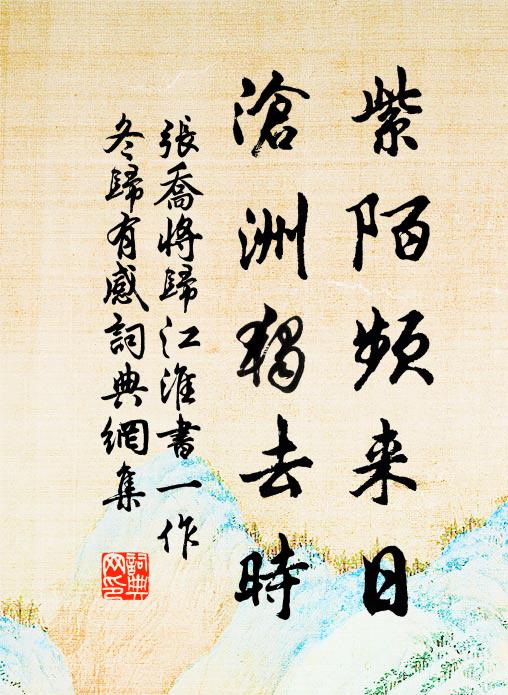 紫陌频来日
滄洲獨去時
張喬將歸江淮書一作
冬歸有感詞典網集
詞典
网印